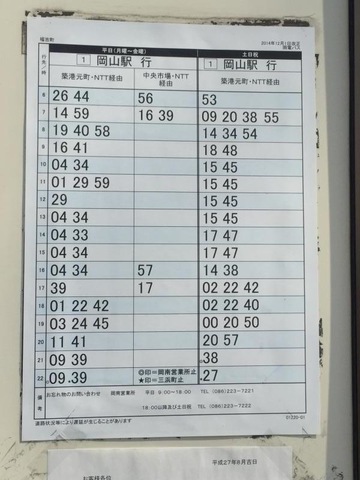 福吉町
平日(月曜~金曜) 土日祝 2014年12月1日改正
行先/時 1 岡山駅 行 1 岡山駅 行
築港元町・NTT経由 中央市場・NTT経由 築港元町・NTT経由
6 26 44 56 53
7 14 59 16 39 09 20 38 55
8 19 40 58 14 34 54
9 16 41 18 48
10 04 34 15 45
11 01 29 59 15 45
12 29 15 45
13 04 34 15 45
14 04 33 17 47
15 04 34 17 47
16 04 34 57 14 38
17 39 17 02 22 42
18 01 22 42 02 22 40
19 03 24 45 00 20 50
20 11 41 20 57
21 09 39 38
22 09 39 ◎印=岡南営業所止 27
★印=三浜町止
備考 お忘れ物のお問い合わせ 岡南営業所 平日 9:00~18:00 TEL (086)223-7221
18:00以降及び土日祝 TEL (086)223-7222
道路状況等により遅延が生じることがあります 51220-01
平成27年8月吉日
お客様各位